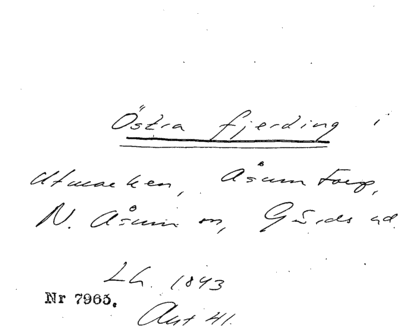 Östra fjerding i
utmarken, Åsumtorp,
N. Åsum sn, Gärds hd.
Lh. 1843
Nr 7965.
Akt 41.